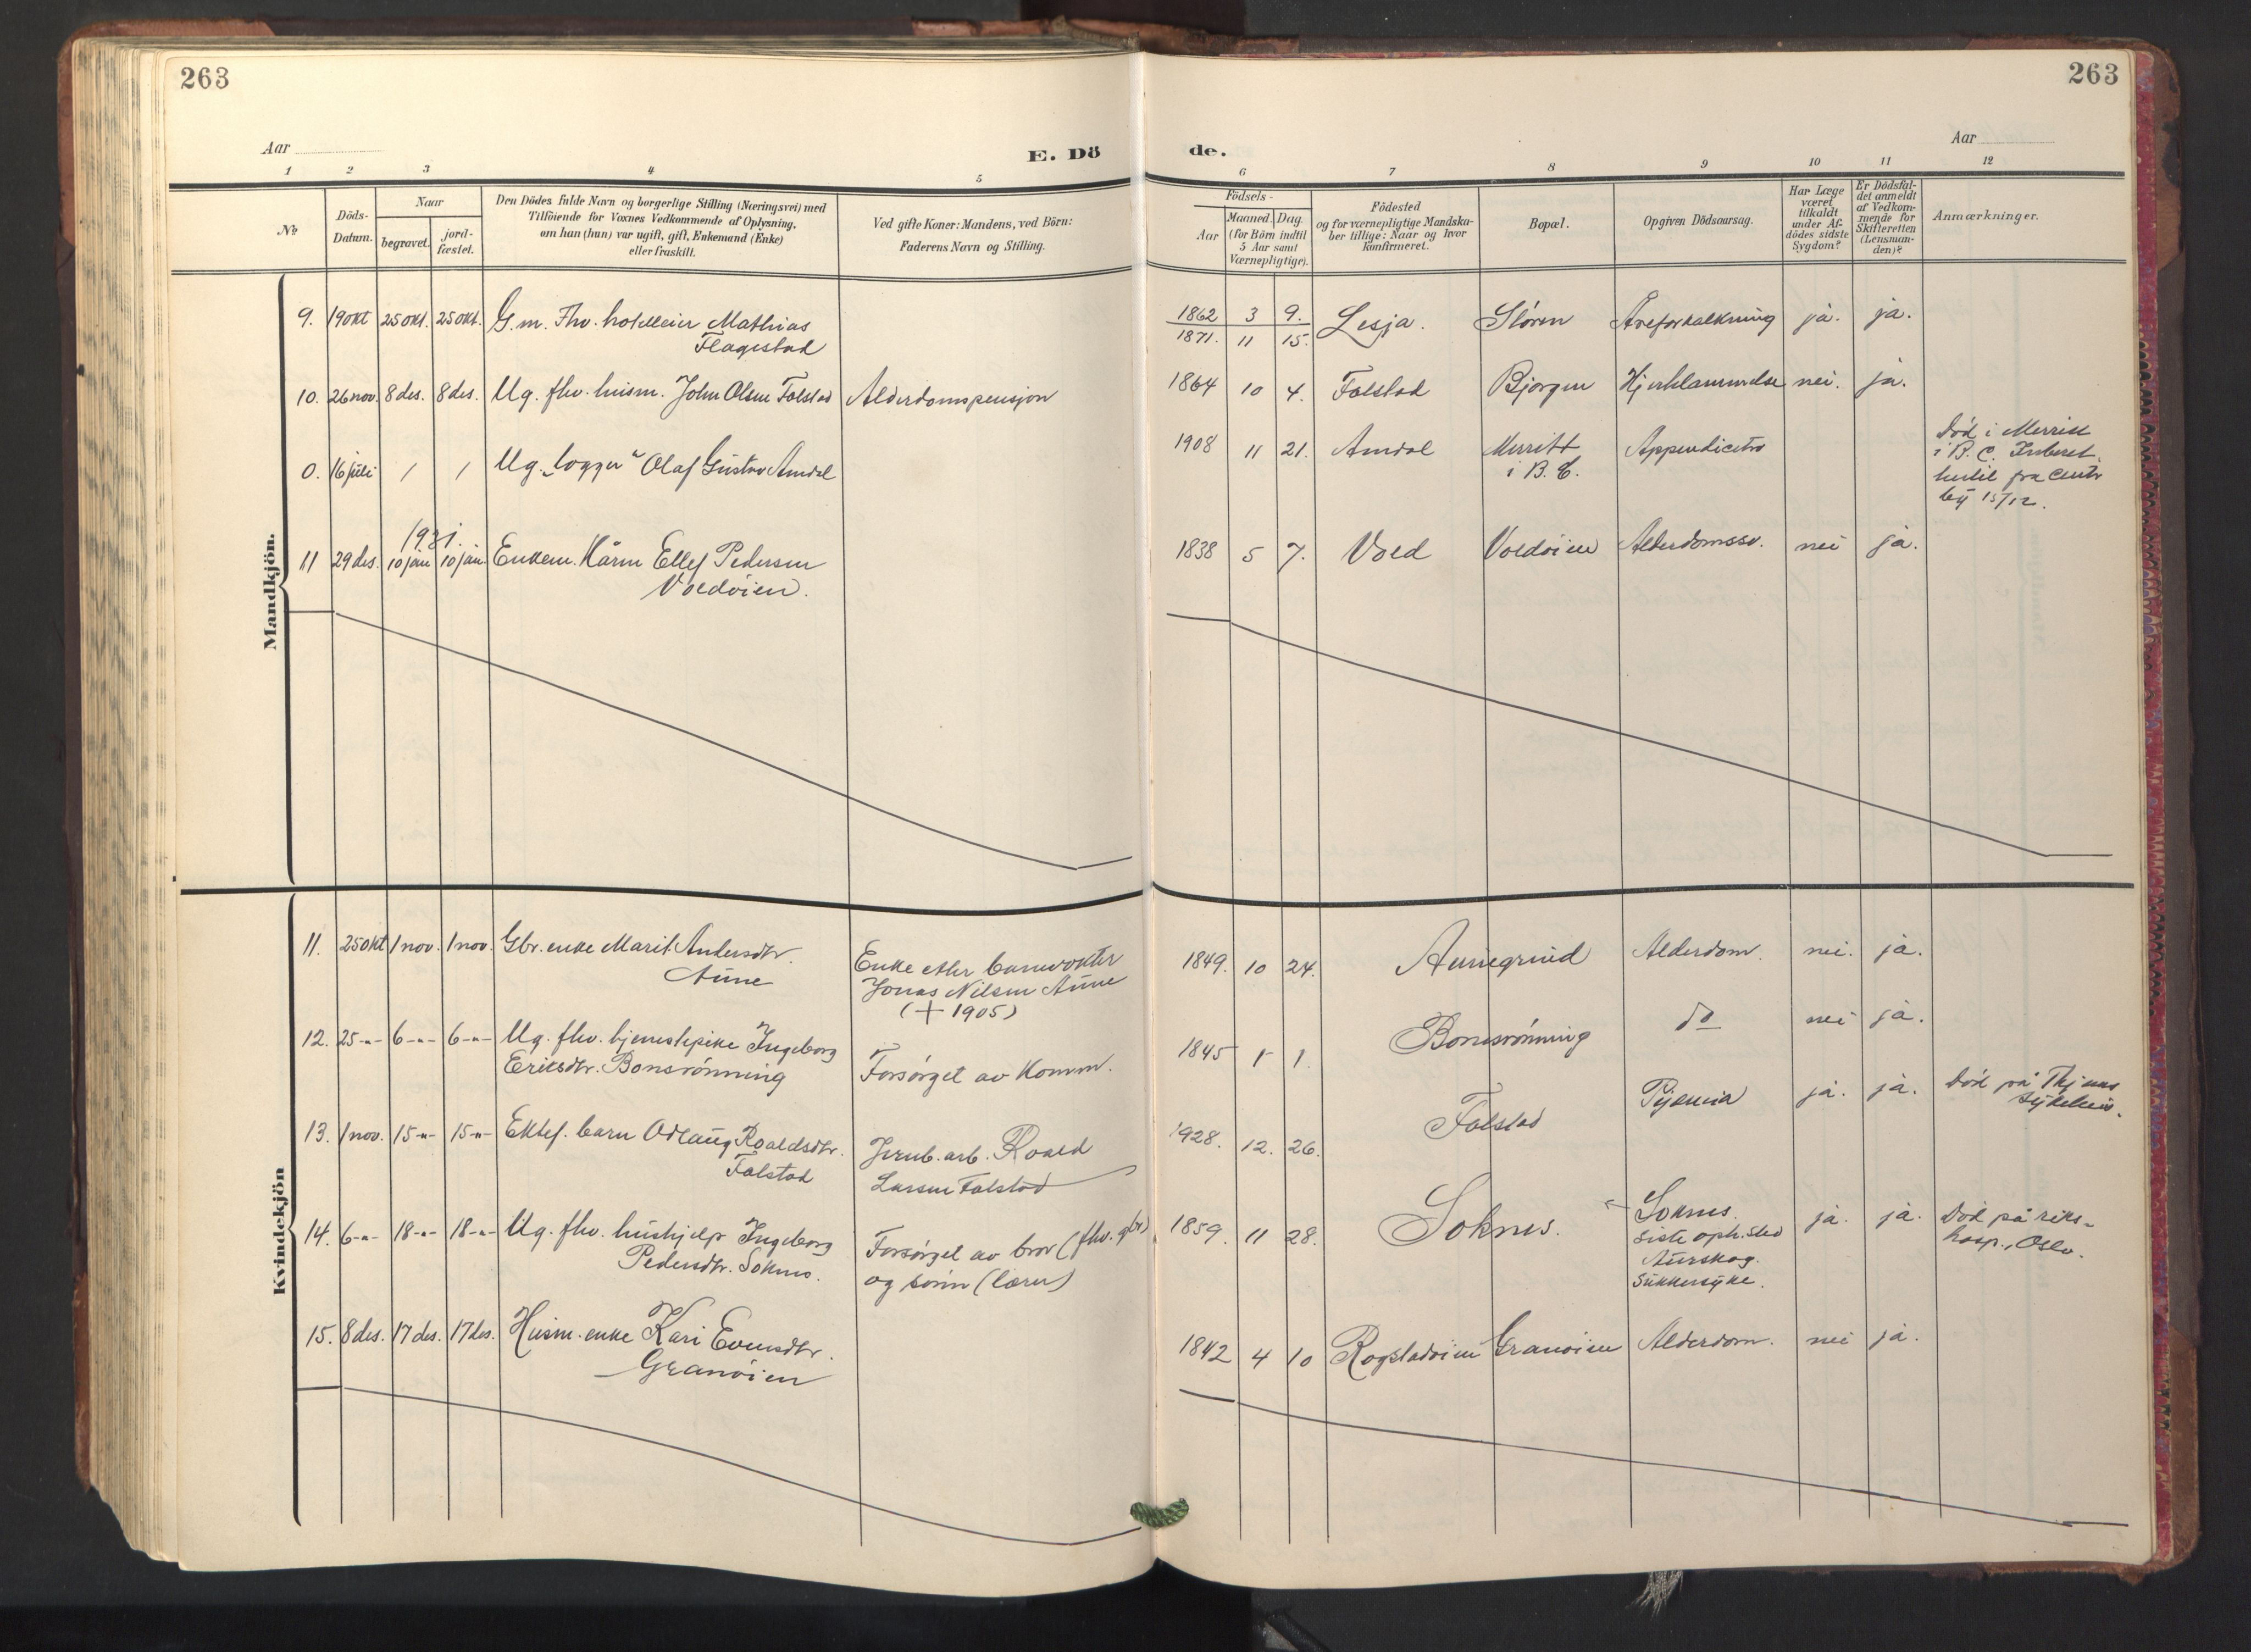 263
263
Aar
E. Dö
de.
Aar
1 2 3 4 5
6 7 8 9 10 11 12
No
Döds-
Datum.
Naar
begravet.
jord-
fæstet.
Den Dödes fulde Navn og borgerlige Stilling (Næringsvei) med
Tilföiende for Voxnes Vedkommende af Oplysning,
om han (hun) var ugift, gift, Enkemand (Enke)
eller fraskilt.
Ved gifte Koner: Mandens, ved Börn:
Faderens Navn og Stilling.
Födsels-
Aar
Maaned. Dag.
(for Börn indtil
5 Aar samt
Værnepligtige).
Födested
og for værnepligtige Mandska-
ber tillige: Naar og hvor
Konfirmeret.
Bopæl.
Opgiven Dödsaarsag.
Har Læge
været
tilkaldt
under Af-
dödes sidste
Sygdom?
Er Dödsfal-
det anmeldt
af Vedkom-
mende for
Skifteretten
(Lensman-
den)?
Anmærkninger.
Mandkjön.
9. 19 okt 25 okt. 25 okt. G.m. Fhv. hotelleier Mathias
Flagestad
1862 3 9. Lesja. Støren Åreforkalkning ja. ja.
1871. 11 15.
10. 26 nov. 8 des. 8 des. Ug. fhv. husm. John Olsen Folstad Alderdomspensjon
1864 10 4. Folstad Bjørgen Hjerteslammelse nei. ja.
0. 16 juli / / Ug. "logger" Olaf Gustav Amdal
1908 11 21. Amdal Merritt
i B.C.
Appendicitis
Død i Merritt
i B.C.
fra
15/12.
1931.
11 29 des. 10 jan 10 jan. Enkem. Kårm Ellef Pedersen
Voldøien.
1838 5 7. Vold Voldøien Alderdomssv. nei ja.
Kvindekjön
11. 25 okt 1 nov. 1 nov. Gbr. enke Marit Andersdtr.
Aune
Enke etter banevokter
Jonas Nilsen Aune
(+ 1905)
1849. 10 24. Aunegrind Alderdom. nei. ja.
12. 25 -"- 6 -"- 6 -"- Ug. fhv. tjenestepike Ingeborg
Ericsdtr. Bonsrønning
Forsørget av Komm.
1845 1 1. Bonsrønning do nei ja.
13. 1 nov. 15 -"- 15 -"- Ektef. barn Odlaug Roaldsdtr.
Folstad
Jernb. arb. Roald
Larsen Folstad
1928. 12. 26. Folstad Pyæmia ja. ja. Død på
sykehus.
14. 6 -"- 18 -"- 18 -"- Ug. fhv. hushjelp Ingeborg
Pedersdtr. Soknes.
Forsørget av bror (fhv. gbr)
og sønn (lærer)
1859. 11 28. Soknes. Soknes.
siste oph.sted
Aurskog.
Sukkersyke.
ja. ja. Død på riks-
hosp., Oslo.
15. 8 des. 17 des. 17 des. Husm. enke Kari Evensdtr.
Granøien
1842 4 10 Rogstadøien Granøien Alderdom. nei ja.